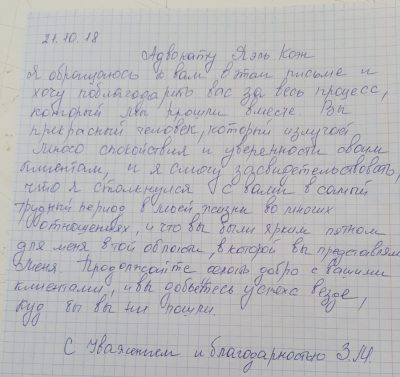 21.10.18
Адвокату Яэль Кац
Я обращаюсь к вам в этом письме и
хочу поблагодарить вас за весь процесс,
который мы прошли вместе. Вы
прекрасный человек, который излучает
много спокойствия и уверенности своим
клиентам, и я смогу засвидетельствовать,
что я столкнулся с вами в самый
трудный период в моей жизни во многих
отношениях, и что вы были ярким пятном
для меня в той области, в которой вы представляли
меня. Продолжайте делать добро с вашими
клиентами, и вы добьётесь успеха везде,
куда бы вы ни пошли.
С уважением и благодарностью З.М.